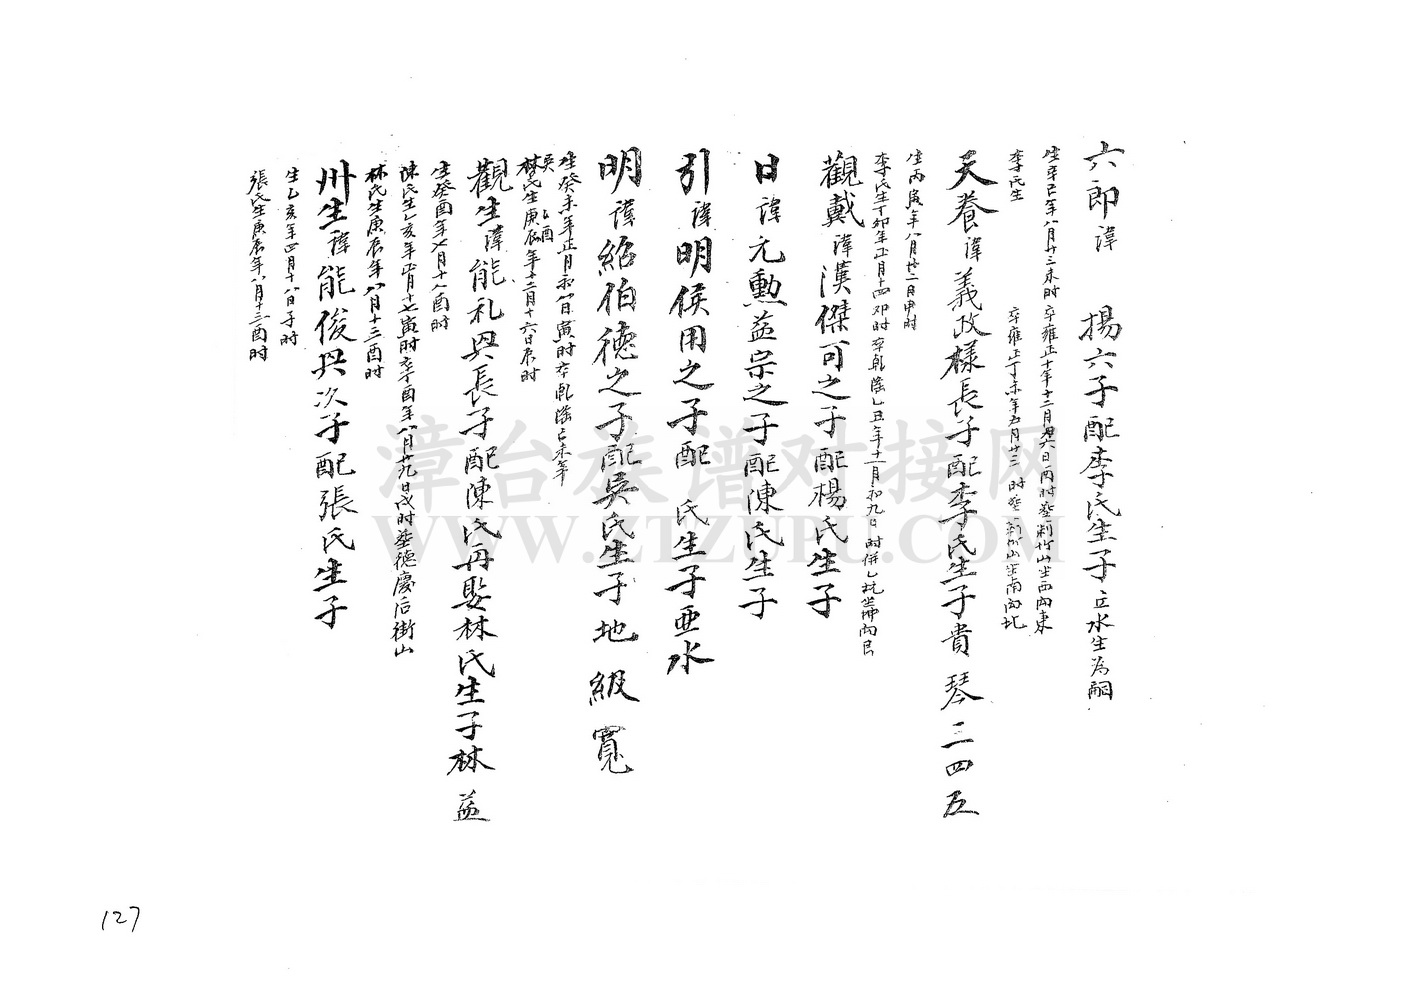 六郎諱 揚六子配李氏生子立水生為嗣
生辛巳年八月十三未时卒雍正十年十二月廿六日丙时葬剌竹山坐西向東
李氏生 卒雍正丁未年五月廿三时葬剌竹山坐南向北
天養諱義政樣長子配李氏生子貴琴三四五
生丙寅年八月廿二日申时
李氏生丁卯年正月十四卯时卒乾隆乙丑年十一月初九日时併乙坑坐坤向艮
觀戴諱漢傑可之子配楊氏生子
日諱元勳益宗之子配陳氏生子
引諱明侯用之子配 氏生子亜水
明諱紹伯德之子配吳氏生子地級寬
生癸未年正月初八日寅时卒乾隆己未年
吳 乙酉
林氏生庚辰年十二月十六日辰时
觀生諱能礼與長子配陳氏再娶林氏生子林益
生癸酉年七月十八酉时
陳氏生乙亥年正月十七寅时卒丁酉年八月廿九日戌时葬德慶后街山
林氏生庚辰年八月十三酉时
卅生諱能俊與次子配張氏生子
生乙亥年四月十八日子时
張氏生庚辰年八月十三酉时
漳台族谱对接网
WWW.ZTZUPU.COM
127